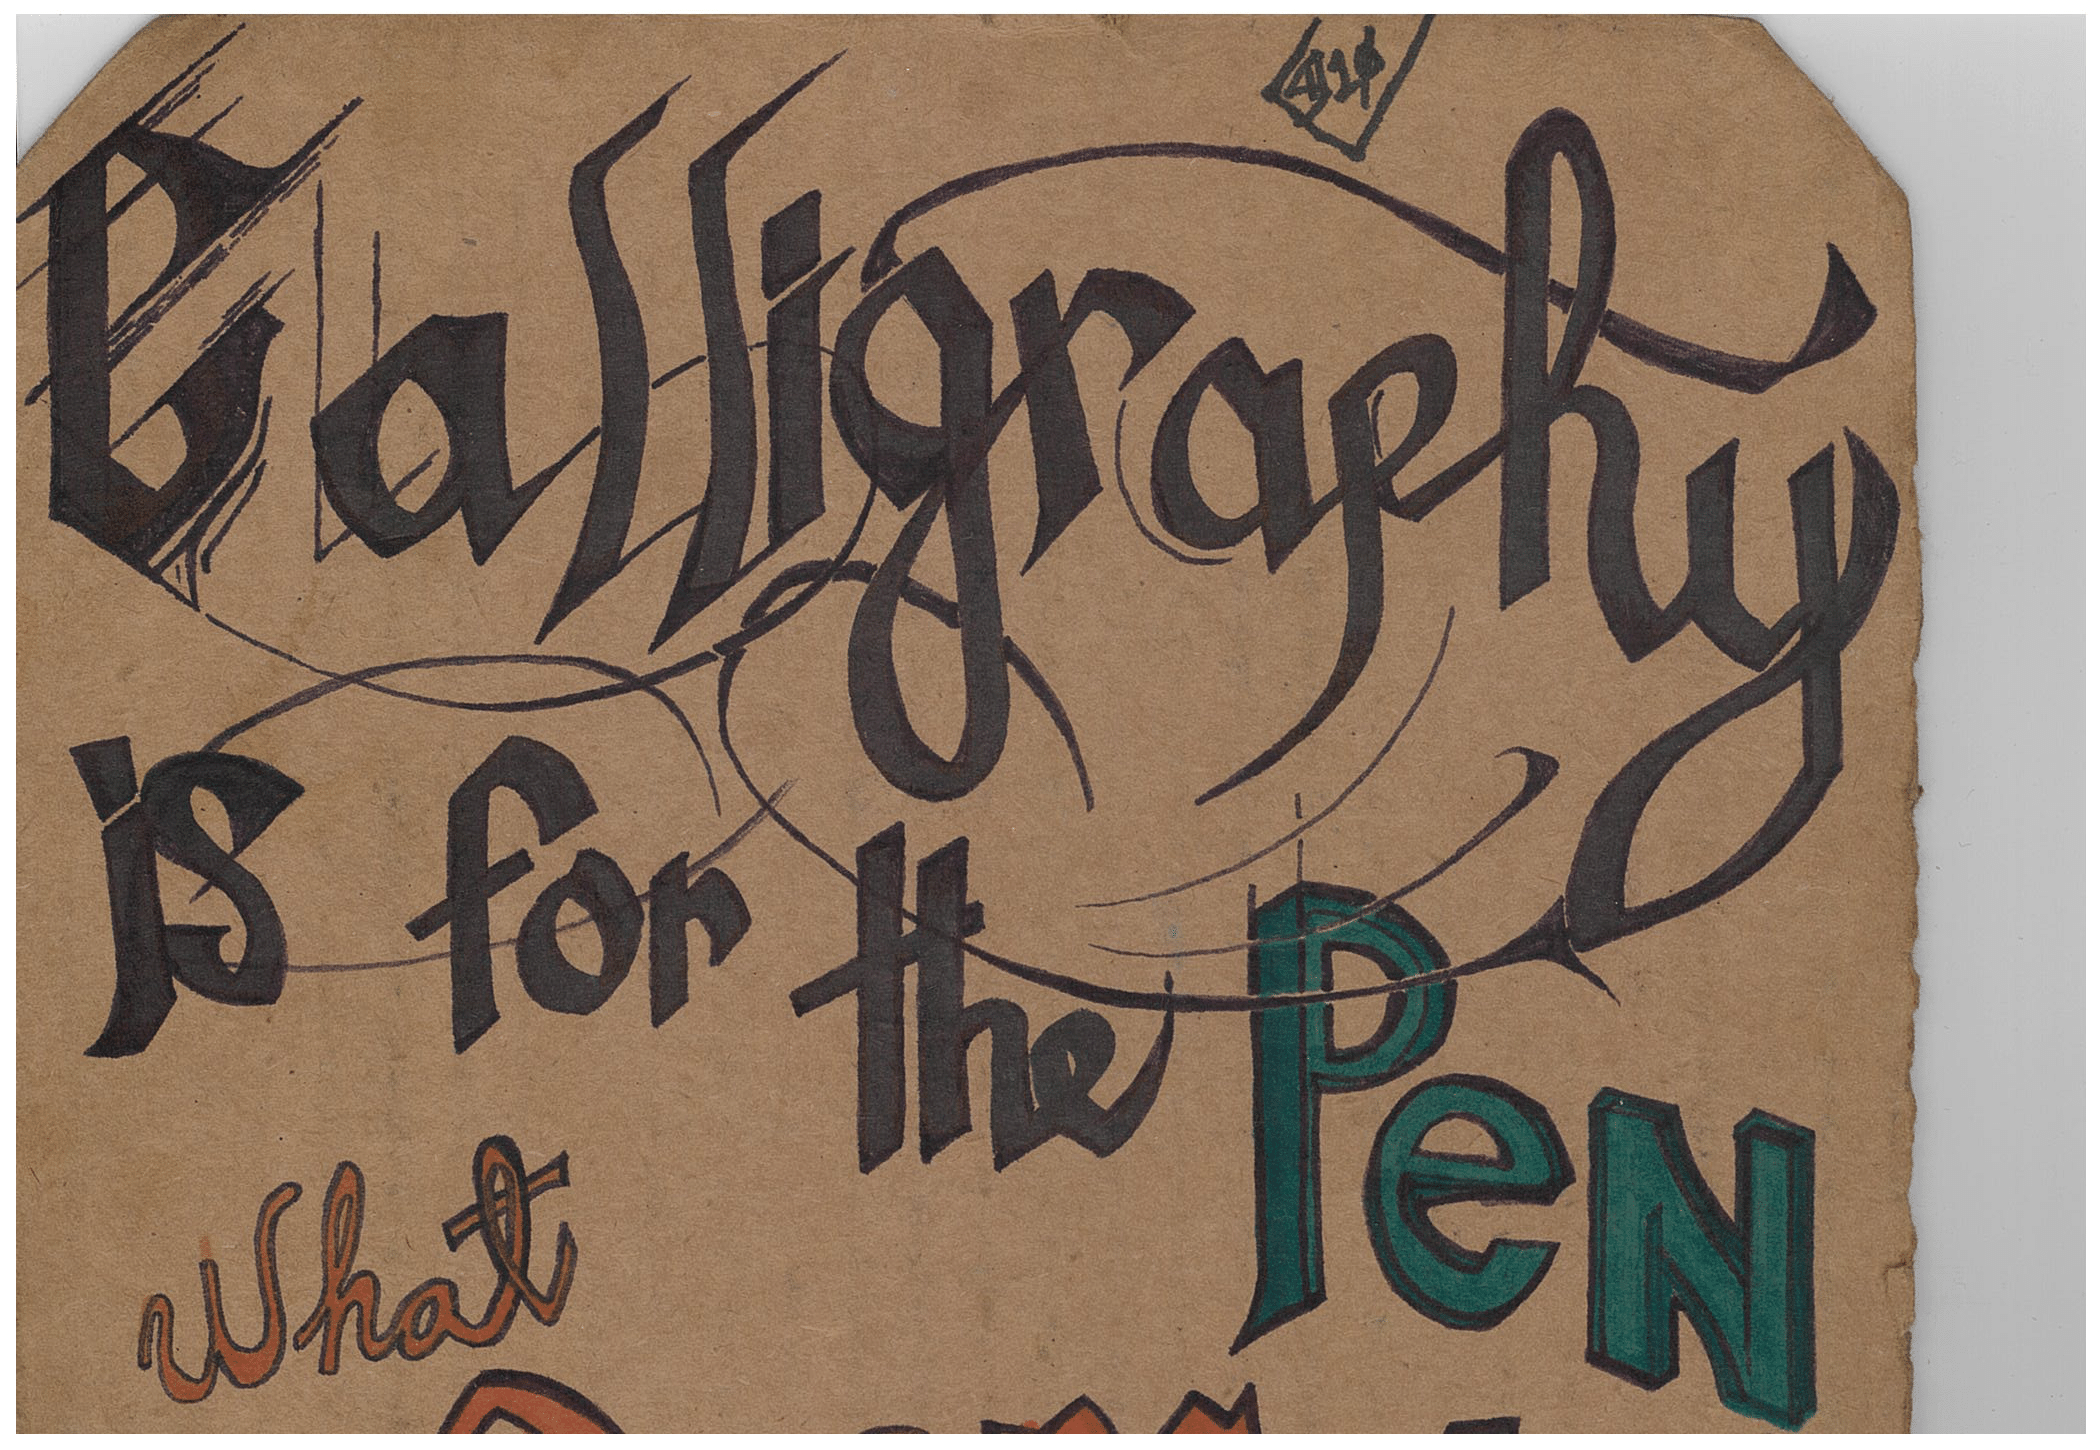 Calligraphy
is for the PeN
What